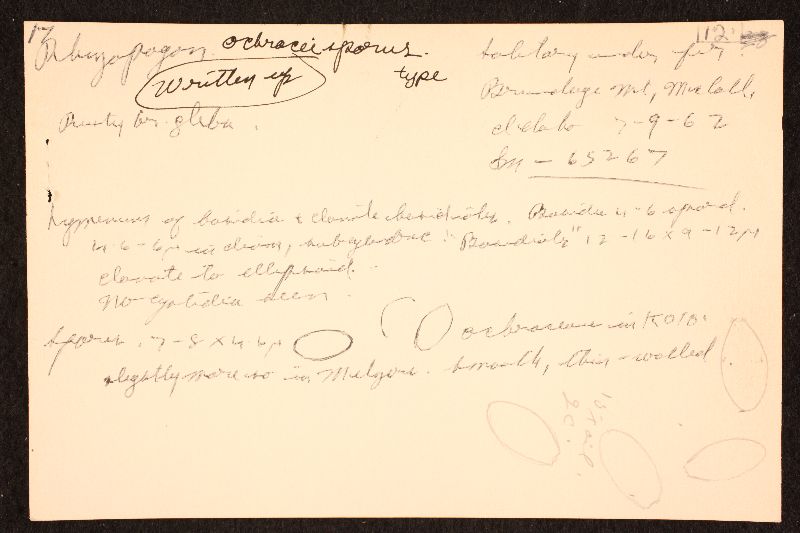 17
Rhizopogon ochraceisporus.
type
Written up
112
Solitary under fir
Brundage Mt, McCall,
Idaho 7-9-62
Sm - 65267
Rusty br. gleba.
hymenium of basidia & clavate basidioles. Basidia 4-6 spored.
4.6-6µ in diam, subcylindric. "Basidiole" 12-16 x 9-12µ
clavate to ellipsoid.
No cystidia seen.
Spores 7-8 x 4-5µ
ochraceous in KOH.
slightly more so in Melzers. smooth, thin-walled